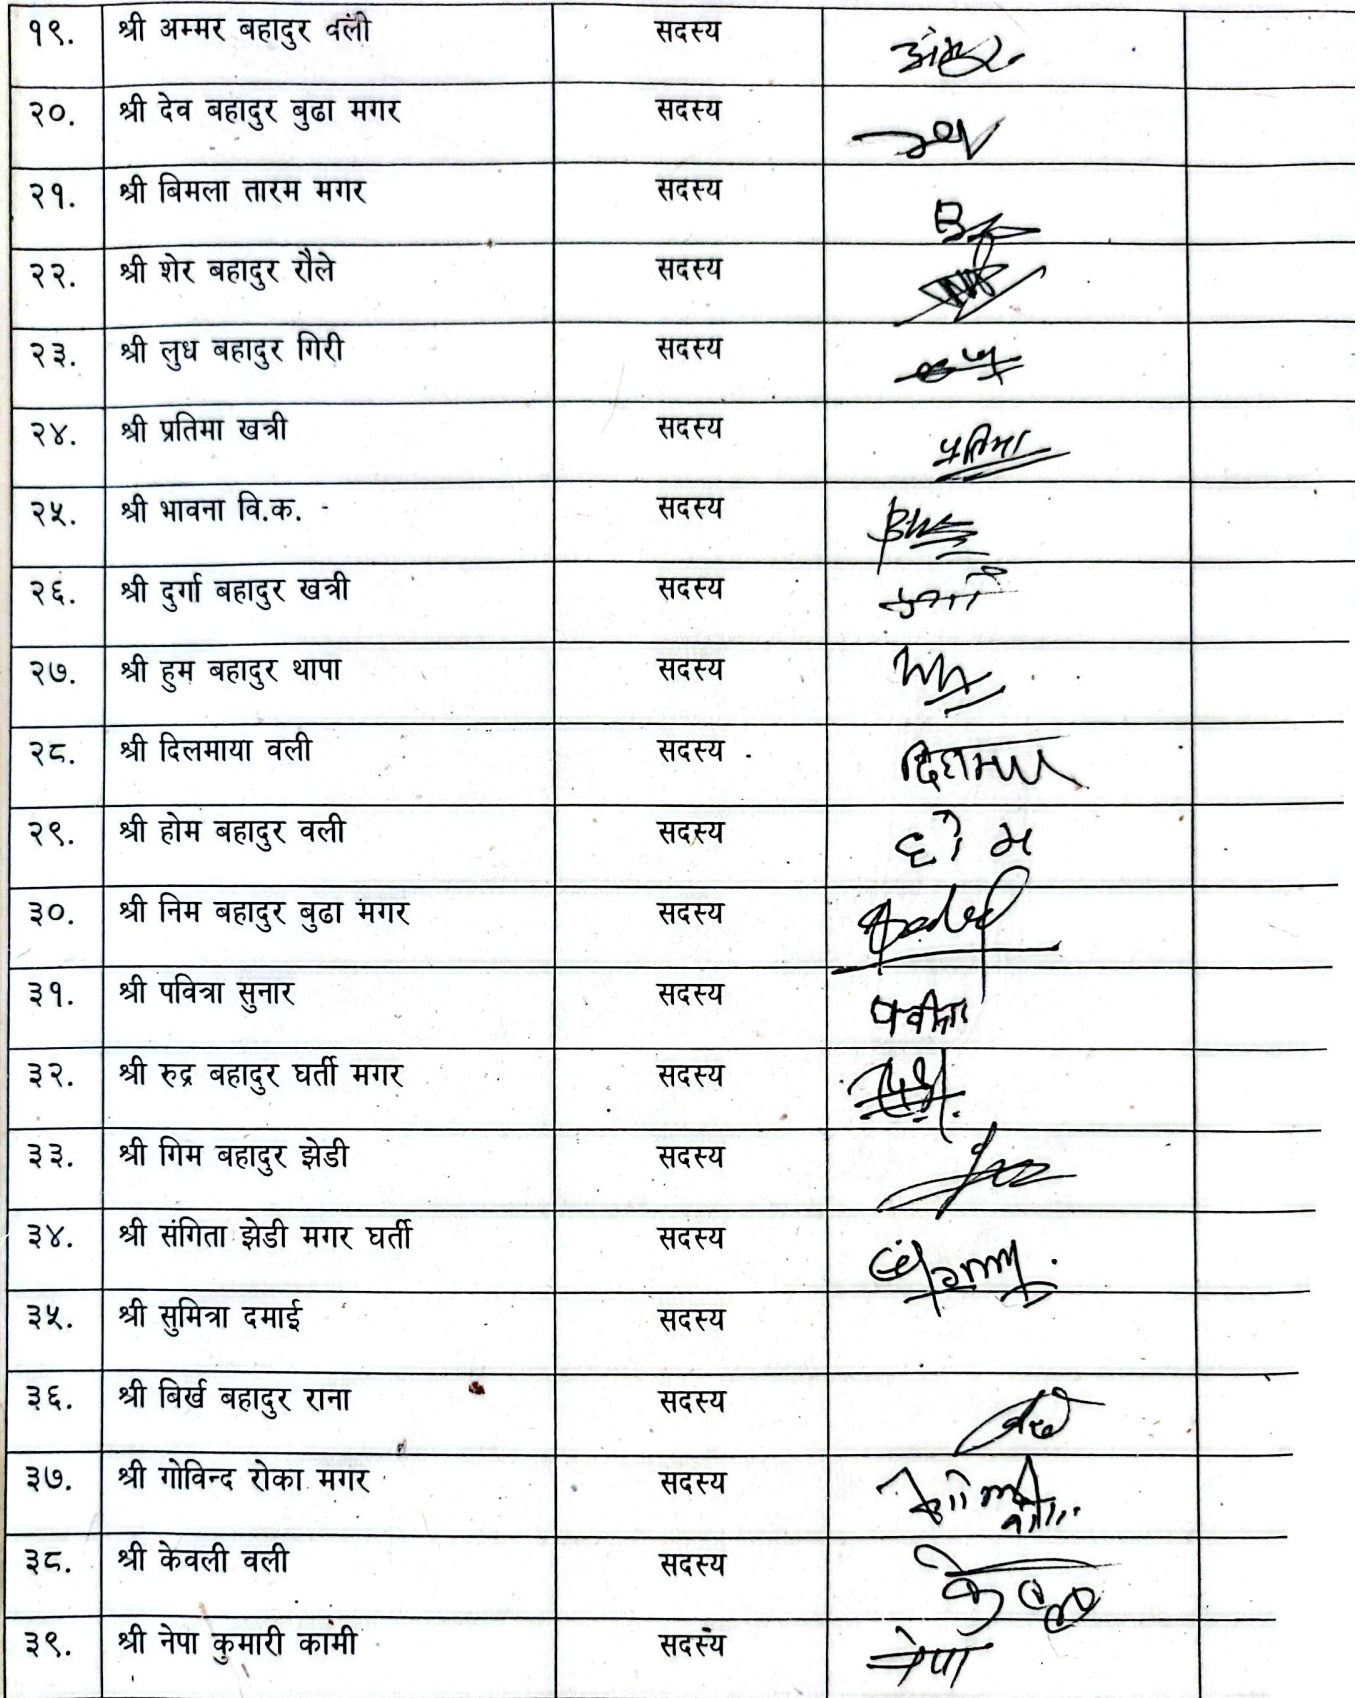 १९. श्री अम्मर बहादुर वली सदस्य
२०. श्री देव बहादुर बुढा मगर सदस्य
२१. श्री बिमला तारम मगर सदस्य
२२. श्री शेर बहादुर रौले सदस्य
२३. श्री लुध बहादुर गिरी सदस्य
२४. श्री प्रतिमा खत्री सदस्य प्रतिमा
२५. श्री भावना वि.क. सदस्य
२६. श्री दुर्गा बहादुर खत्री सदस्य
२७. श्री हुम बहादुर थापा सदस्य
२८. श्री दिलमाया वली सदस्य
२९. श्री होम बहादुर वली सदस्य होम
३०. श्री निम बहादुर बुढा मगर सदस्य
३१. श्री पवित्रा सुनार सदस्य
३२. श्री रुद्र बहादुर घर्ती मगर सदस्य
३३. श्री गिम बहादुर झेडी सदस्य
३४. श्री संगिता झेडी मगर घर्ती सदस्य
३५. श्री सुमित्रा दमाई सदस्य
३६. श्री बिर्ख बहादुर राना सदस्य
३७. श्री गोविन्द रोका मगर सदस्य
३८. श्री केवली वली सदस्य
३९. श्री नेपा कुमारी कामी सदस्य नेपा